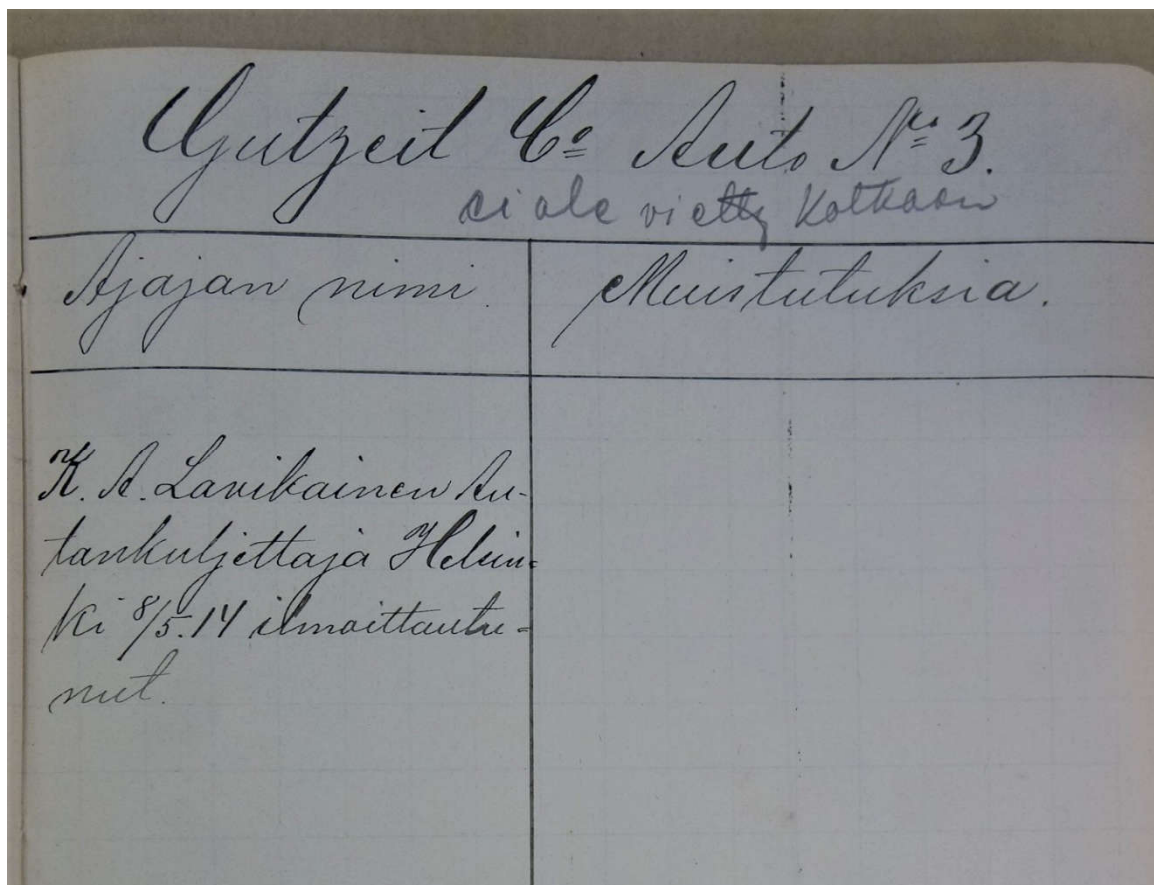 Gutzeit Co Auto No 3.
ei ole vietty Kotkaan
Ajajan nimi.
Muistutuksia.
K. A. Lavikainen Au-
tankuljettaja Helsin-
ki 8/5.14 ilmoittautu-
nut.